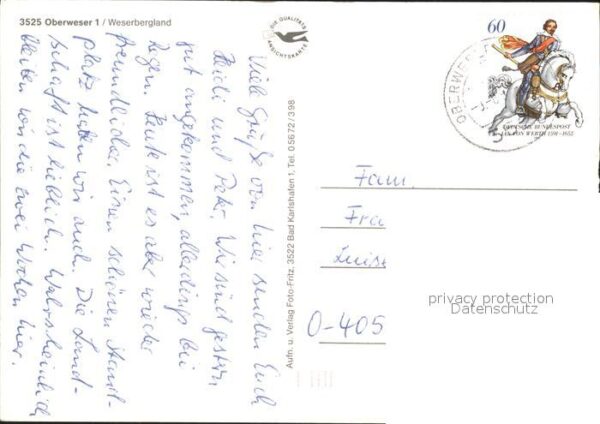 3525 Oberweser 1 / Weserbergland
DIE QUALITÄTS
ANSICHTSKARTE
Viele Grüße von hier senden Euch
Heidi und Peter. Wir sind gestern
gut angekommen, allerdings bei
Regen. Heute ist es aber wieder
freundlicher. Einen schönen Stand-
platz haben wir auch. Die Land-
schaft ist lieblich. Wahrscheinlich
bleiben wir die zwei Wochen hier.
Aufn. u. Verlag Foto-Fritz, 3522 Bad Karlshafen 1, Tel. 0 56 72 / 3 98
60
DEUTSCHE BUNDESPOST
JAN VON WERTH 1591-1652
OBERWESER
Fam.
Fra
Luise
O-405
privacy protection
Datenschutz